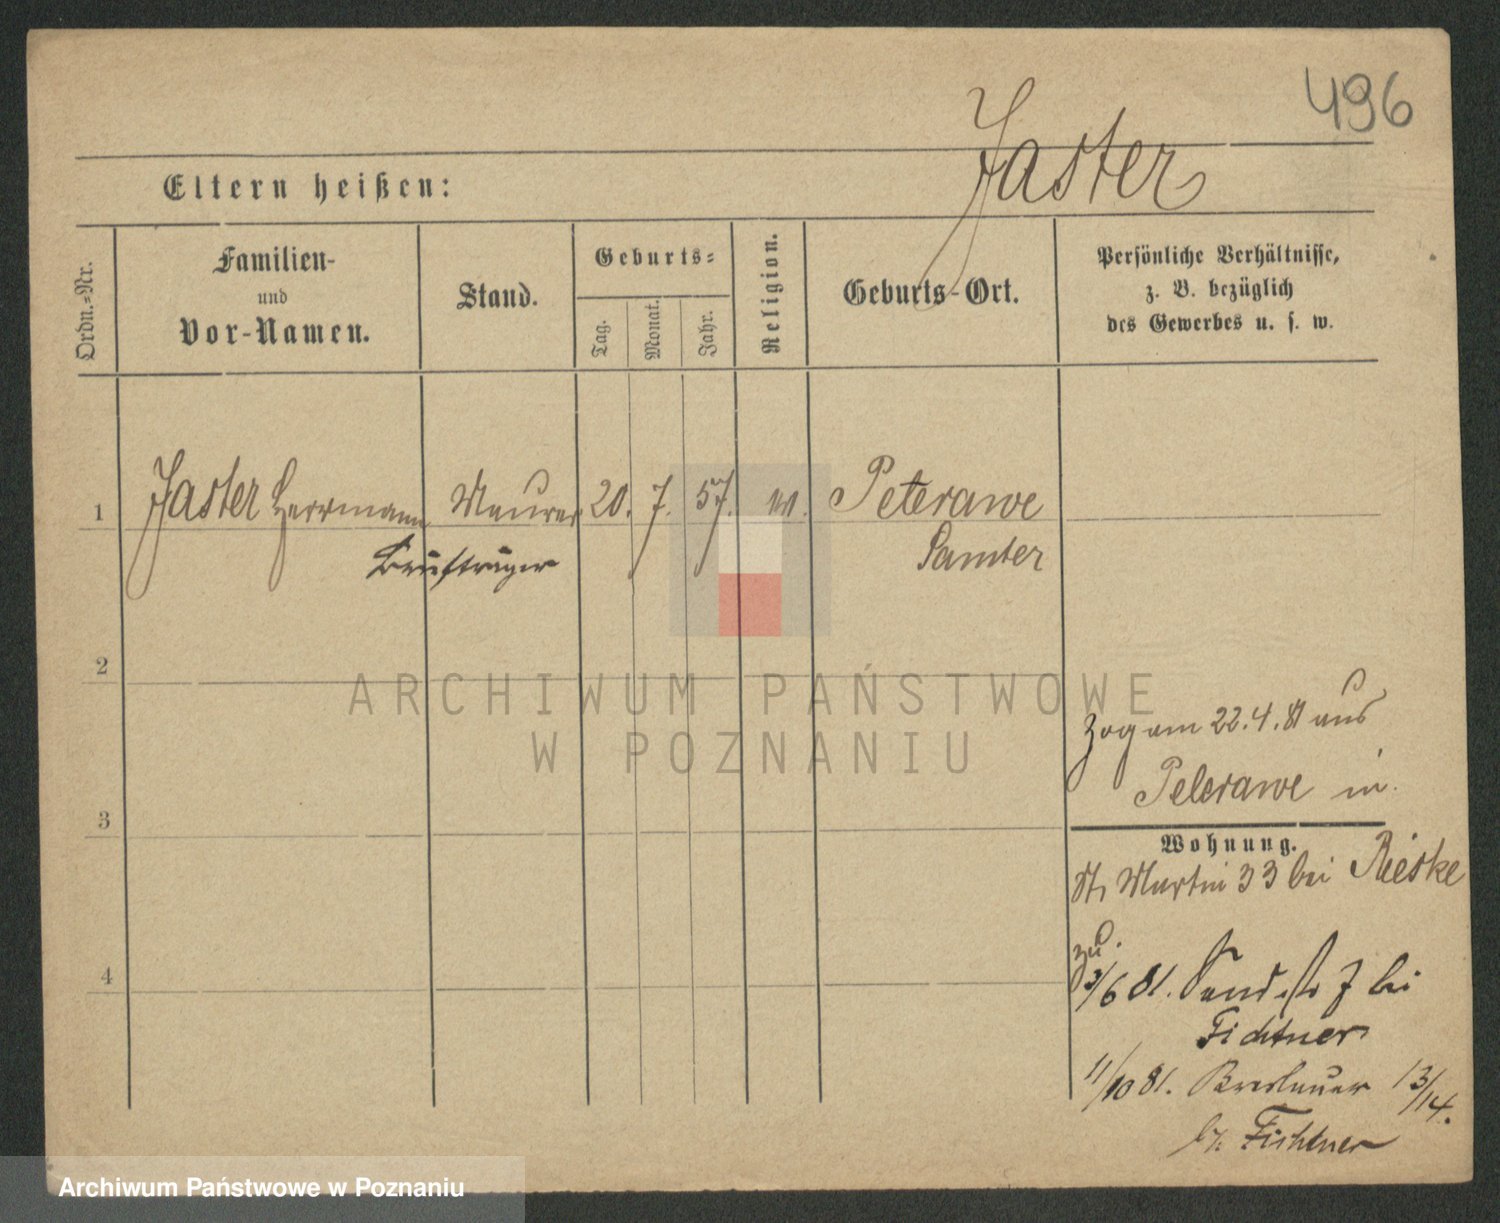 496
Jaster
Eltern heißen:
Ordn.-Nr.
Familien-
und
Vor-Namen.
Stand.
Geburts-
Tag.
Monat.
Jahr.
Religion.
Geburts-Ort.
Persönliche Verhältnisse,
z. B. bezüglich
des Gewerbes u. s. w.
1 Jaster Herrmann Maurer 20. 7. 57. Peterawe
Samter
2
zog am 22.4.81 aus
Peterawe in
3
Wohnung.
St. Martin 33 bei Rieske
zu.
3/6 81. Sandstr 7 bei
4
Fichtner
11/10 81. Breslauer 13/14.
b/. Fichtner
ARCHIWUM PAŃSTWOWE
W POZNANIU
Archiwum Państwowe w Poznaniu